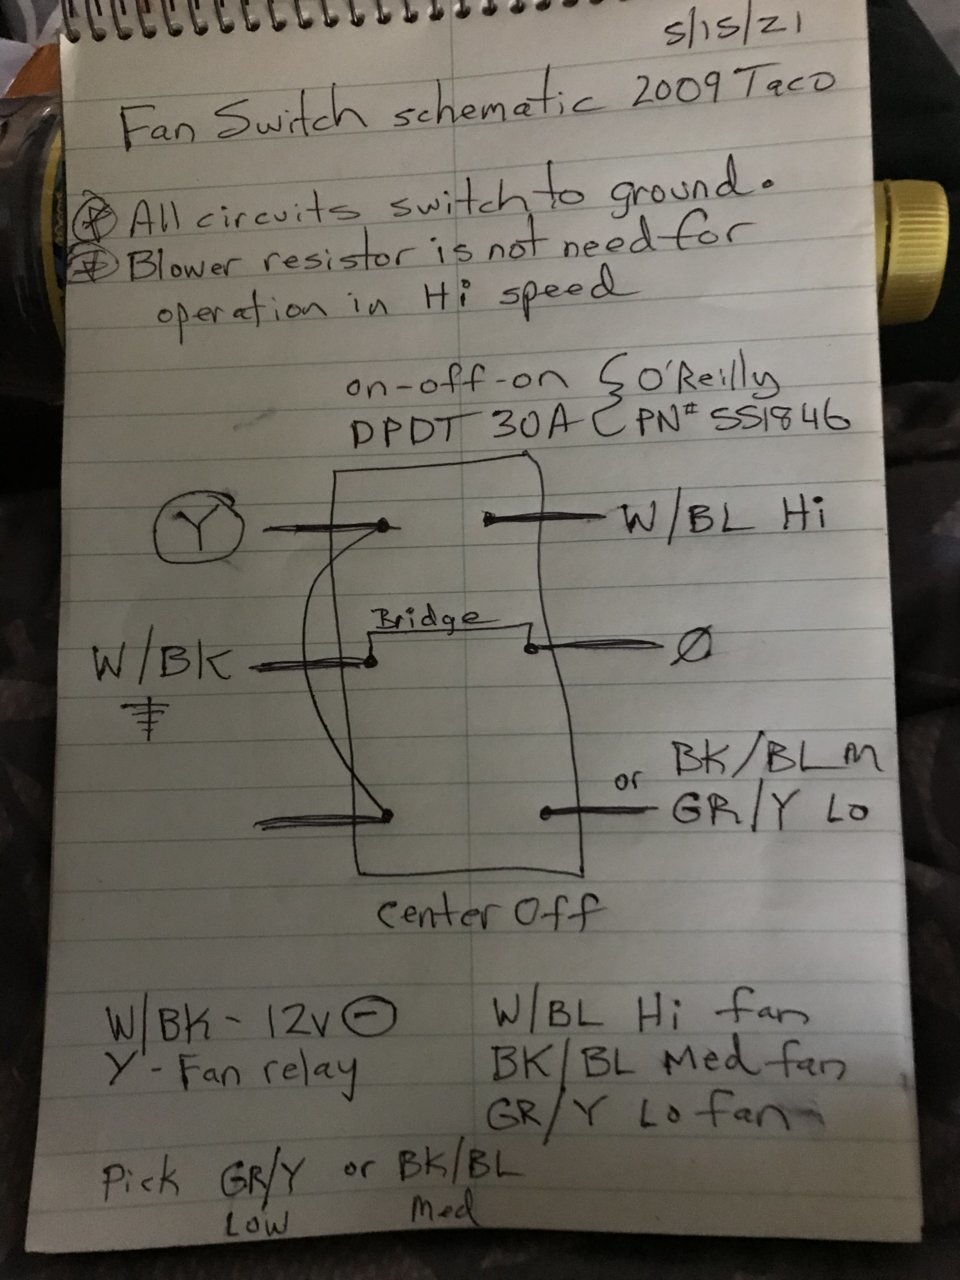 5/15/21
Fan Switch schematic 2009 Taco
* All circuits switch to ground.
* Blower resistor is not need for
operation in Hi speed
on-off-on { O'Reilly
DPDT 30A { PN# SS1846
Y
W/BL Hi
Bridge
W/BK
Ø
BK/BL M
or
GR/Y Lo
Center Off
W/BK - 12v ⊖
W/BL Hi fan
Y - Fan relay
BK/BL Med fan
GR/Y Lo fan
Pick GR/Y or BK/BL
Low Med